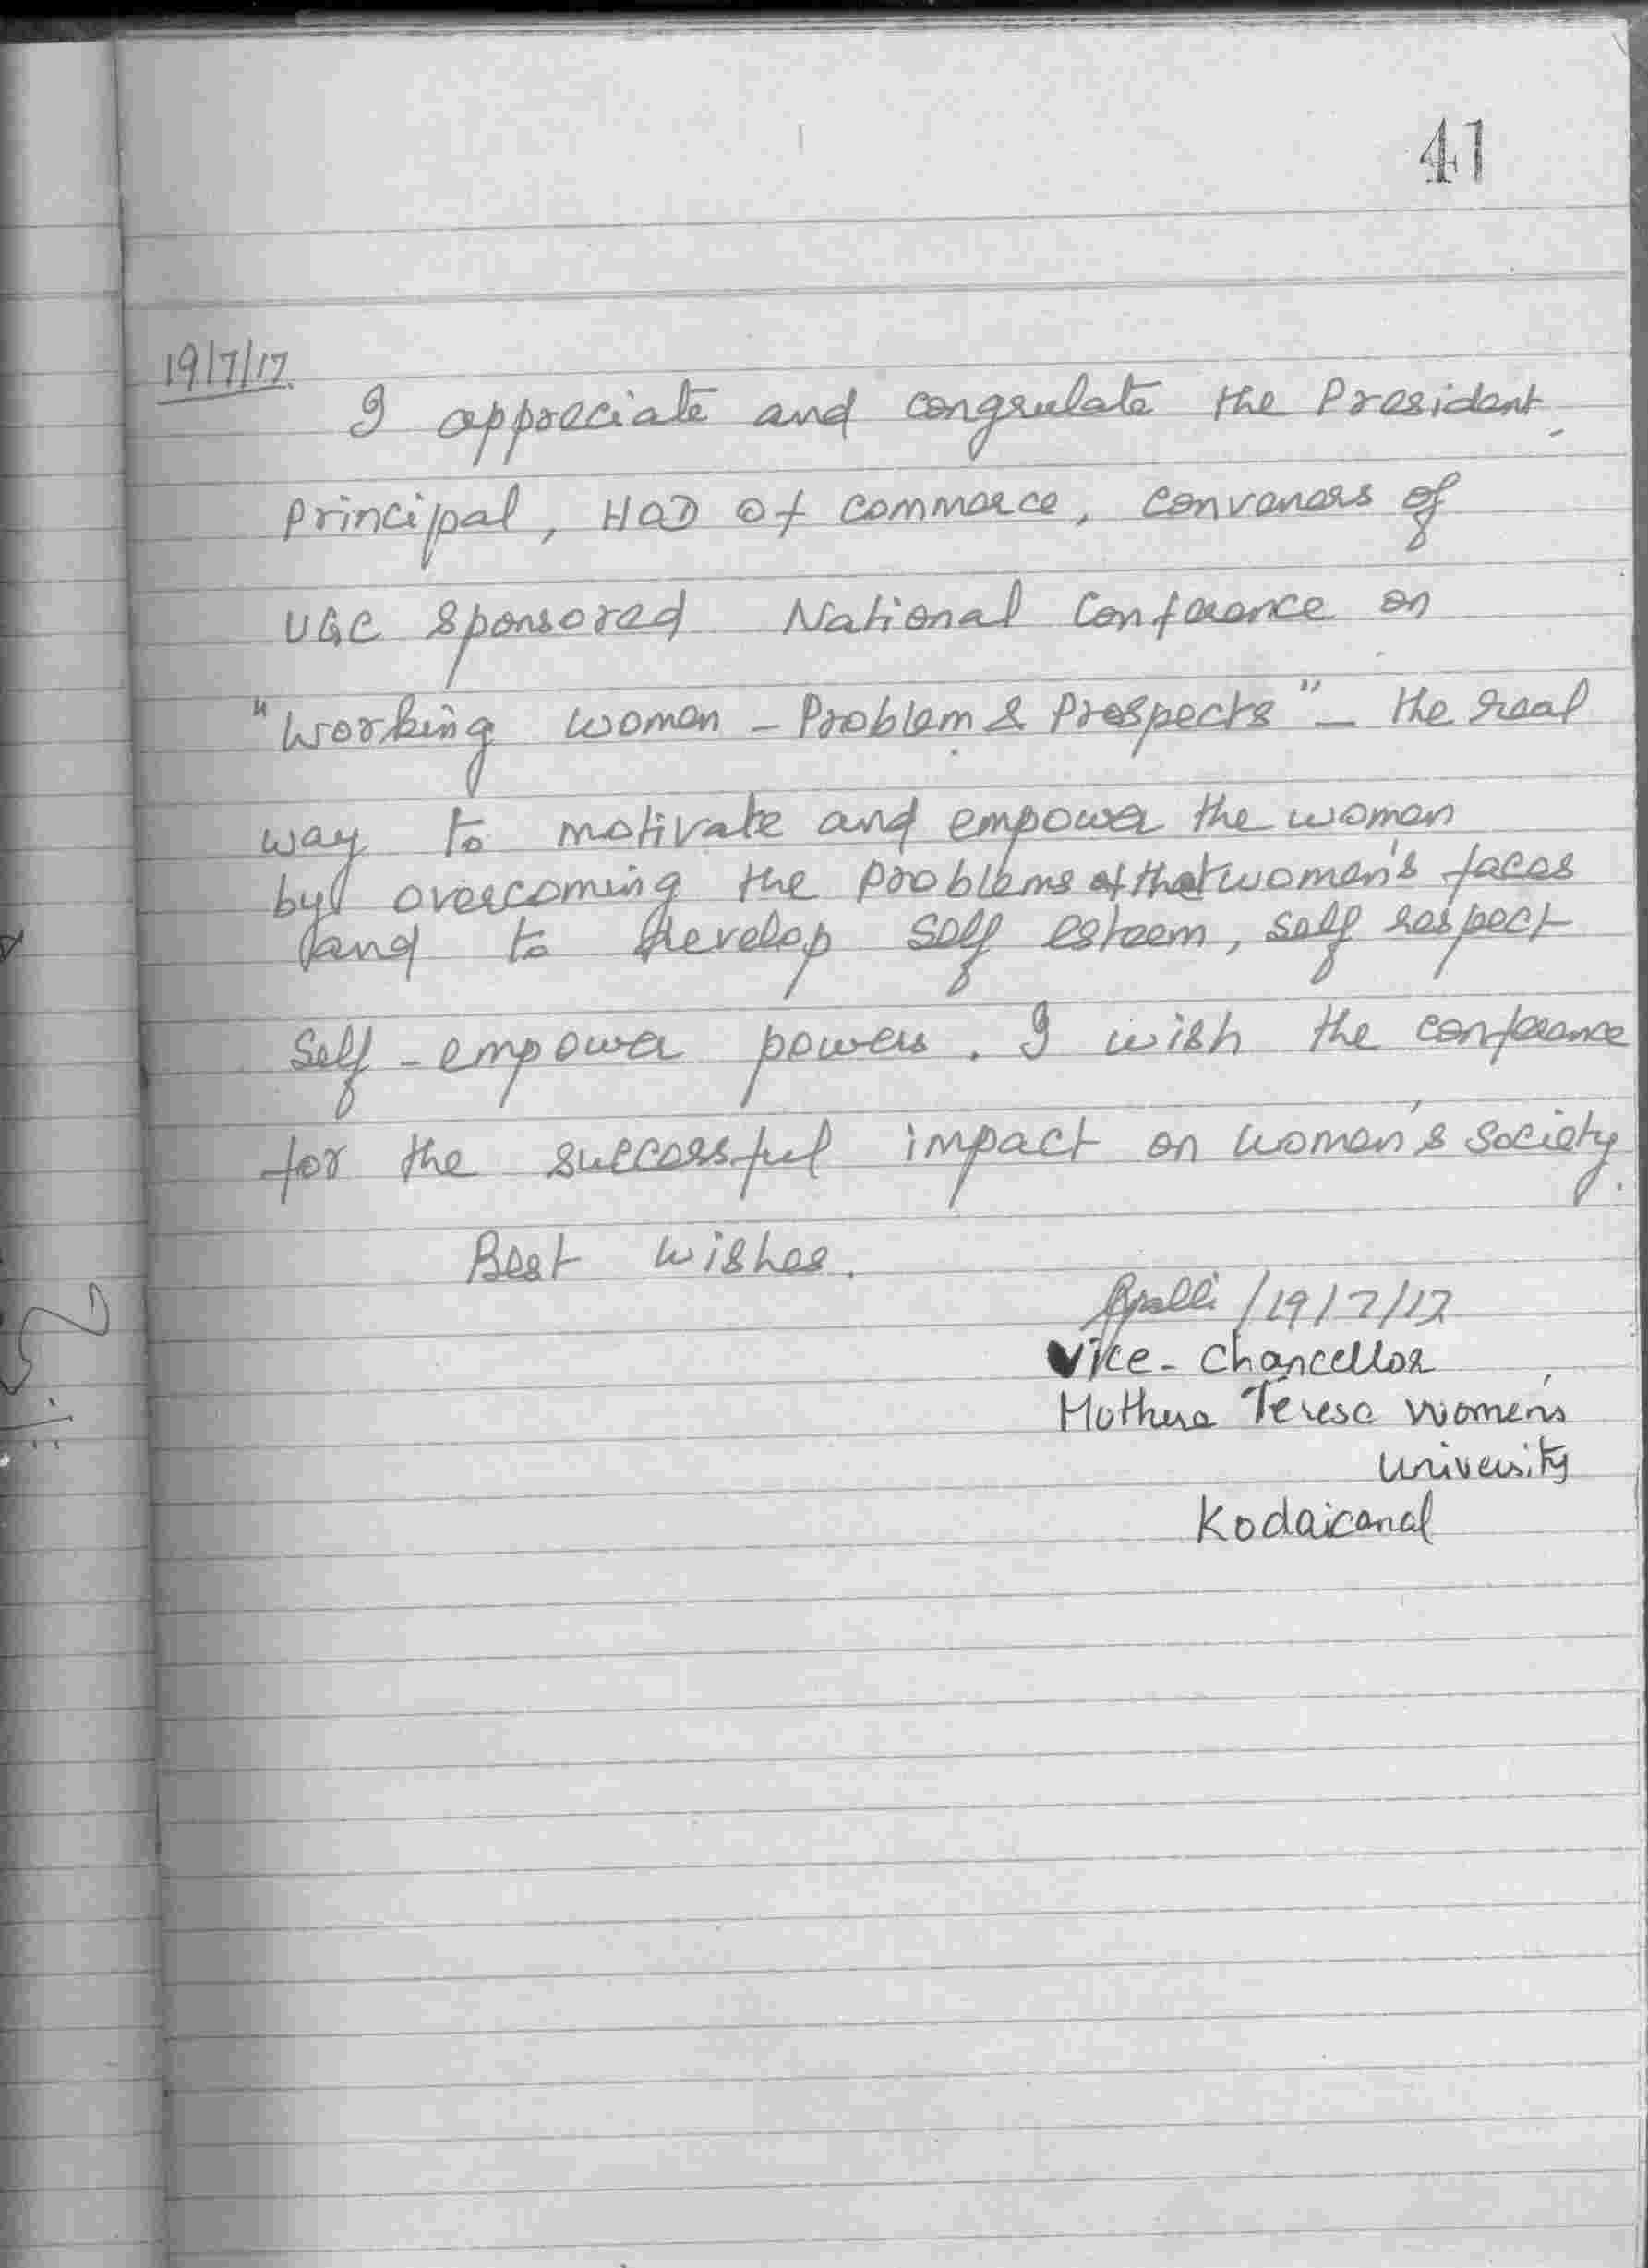 41
19/7/17.
I appreciate and congrulate the President,
Principal, HOD of commerce, conveners of
UGC Sponsored National Conference on
"Working women - Problem & Prospects" - the real
way to motivate and empower the women
by overcoming the problems that women's faces
and to develop self esteem, self respect
Self - empower powers. I wish the conference
for the successful impact on women's society.
Best wishes.
/19/7/17
Vice - Chancellor
Mother Teresa Women's
University
Kodaicanal